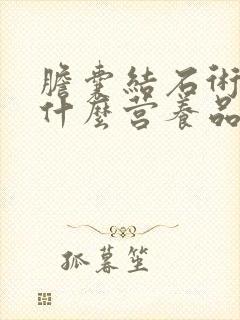 膽囊結石術
什麼营養品
孤暮笙